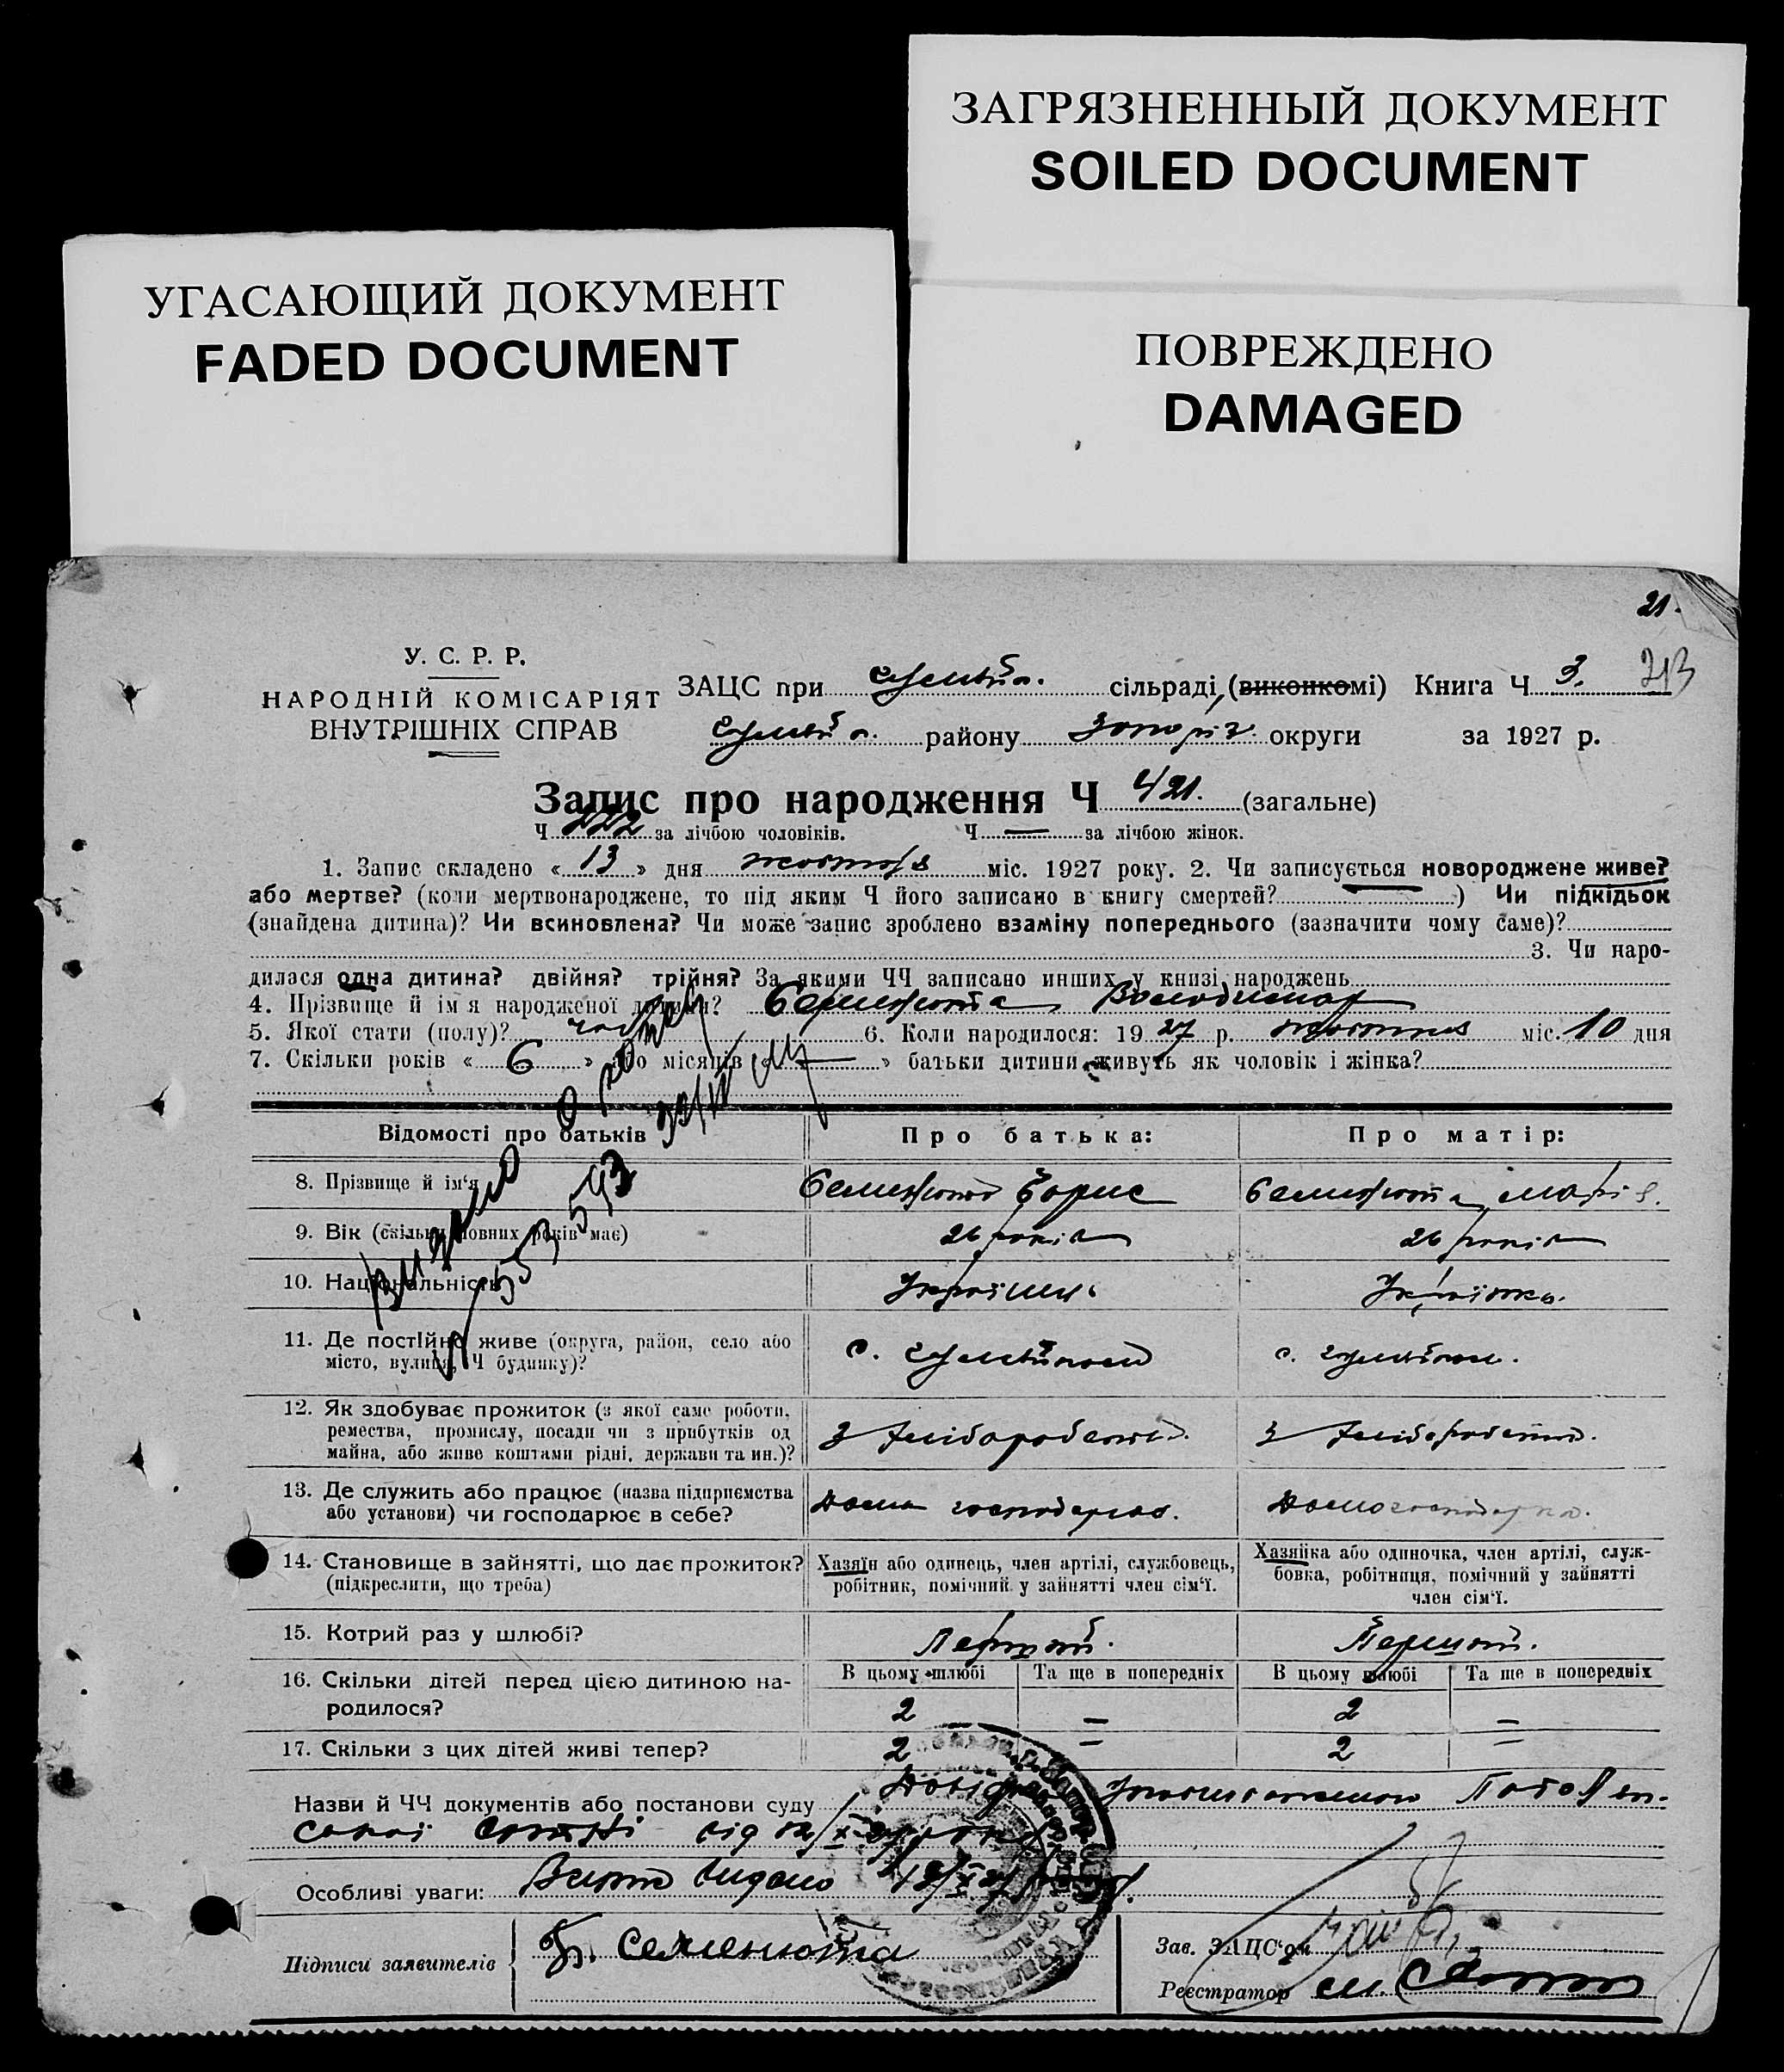 ЗАГРЯЗНЕННЫЙ ДОКУМЕНТ
SOILED DOCUMENT
УГАСАЮЩИЙ ДОКУМЕНТ
FADED DOCUMENT
ПОВРЕЖДЕНО
DAMAGED
21.
213
У. С. Р. Р.
НАРОДНІЙ КОМІСАРІЯТ
ВНУТРІШНІХ СПРАВ
ЗАЦС при сільраді, (виконкомі) Книга Ч 3.
району Запоріз. округи за 1927 р.
Запис про народження Ч 421. (загальне)
Ч 222 за лічбою чоловіків. Ч — за лічбою жінок.
1. Запис складено « 13 » дня жовтня міс. 1927 року. 2. Чи записується новороджене живе?
або мертве? (коли мертвонароджене, то під яким Ч його записано в книгу смертей? ) Чи підкідьок
(знайдена дитина)? Чи всиновлена? Чи може запис зроблено взаміну попереднього (зазначити чому саме)?
3. Чи наро-
дилася одна дитина? двійня? трійня? За якими ЧЧ записано инших у книзі народжень
4. Прізвище й імя народженої дитини? Семенюта Володимир
5. Якої стати (полу)? 6. Коли народилося: 19 27 р. жовтня міс. 10 дня
7. Скільки років « 6 » або місяців « — » батьки дитини живуть як чоловік і жінка?
Відомості про батьків Про батька: Про матір:
8. Прізвище й ім'я Семенюта Борис Семенюта Марія.
9. Вік (скільки повних років має) 26 років 26 років
10. Національність Українець Українка.
11. Де постійно живе (округа, район, село або
місто, вулиця, Ч будинку)?
12. Як здобуває прожиток (з якої саме роботи,
ремества, промислу, посади чи з прибутків од
майна, або живе коштами рідні, держави та ин.)?
З хліборобства. З хліборобства.
13. Де служить або працює (назва підприємства
або установи) чи господарює в себе?
Дома господарює. Домогосподарка.
14. Становище в зайнятті, що дає прожиток?
(підкреслити, що треба)
Хазяїн або одинець, член артілі, службовець,
робітник, помічний у зайнятті член сім'ї.
Хазяйка або одиночка, член артілі, служ-
бовка, робітниця, помічний у зайнятті
член сім'ї.
15. Котрий раз у шлюбі? Перший. Перший.
16. Скільки дітей перед цією дитиною на-
родилося?
В цьому шлюбі Та ще в попередніх В цьому шлюбі Та ще в попередніх
2 — 2 —
17. Скільки з цих дітей живі тепер? 2 — 2 —
Назви й ЧЧ документів або постанови суду
Особливі уваги: Витяг видано
Підписи заявителів Б. Семенюта
Зав. ЗАЦС'ом
Реєстратор
Видано